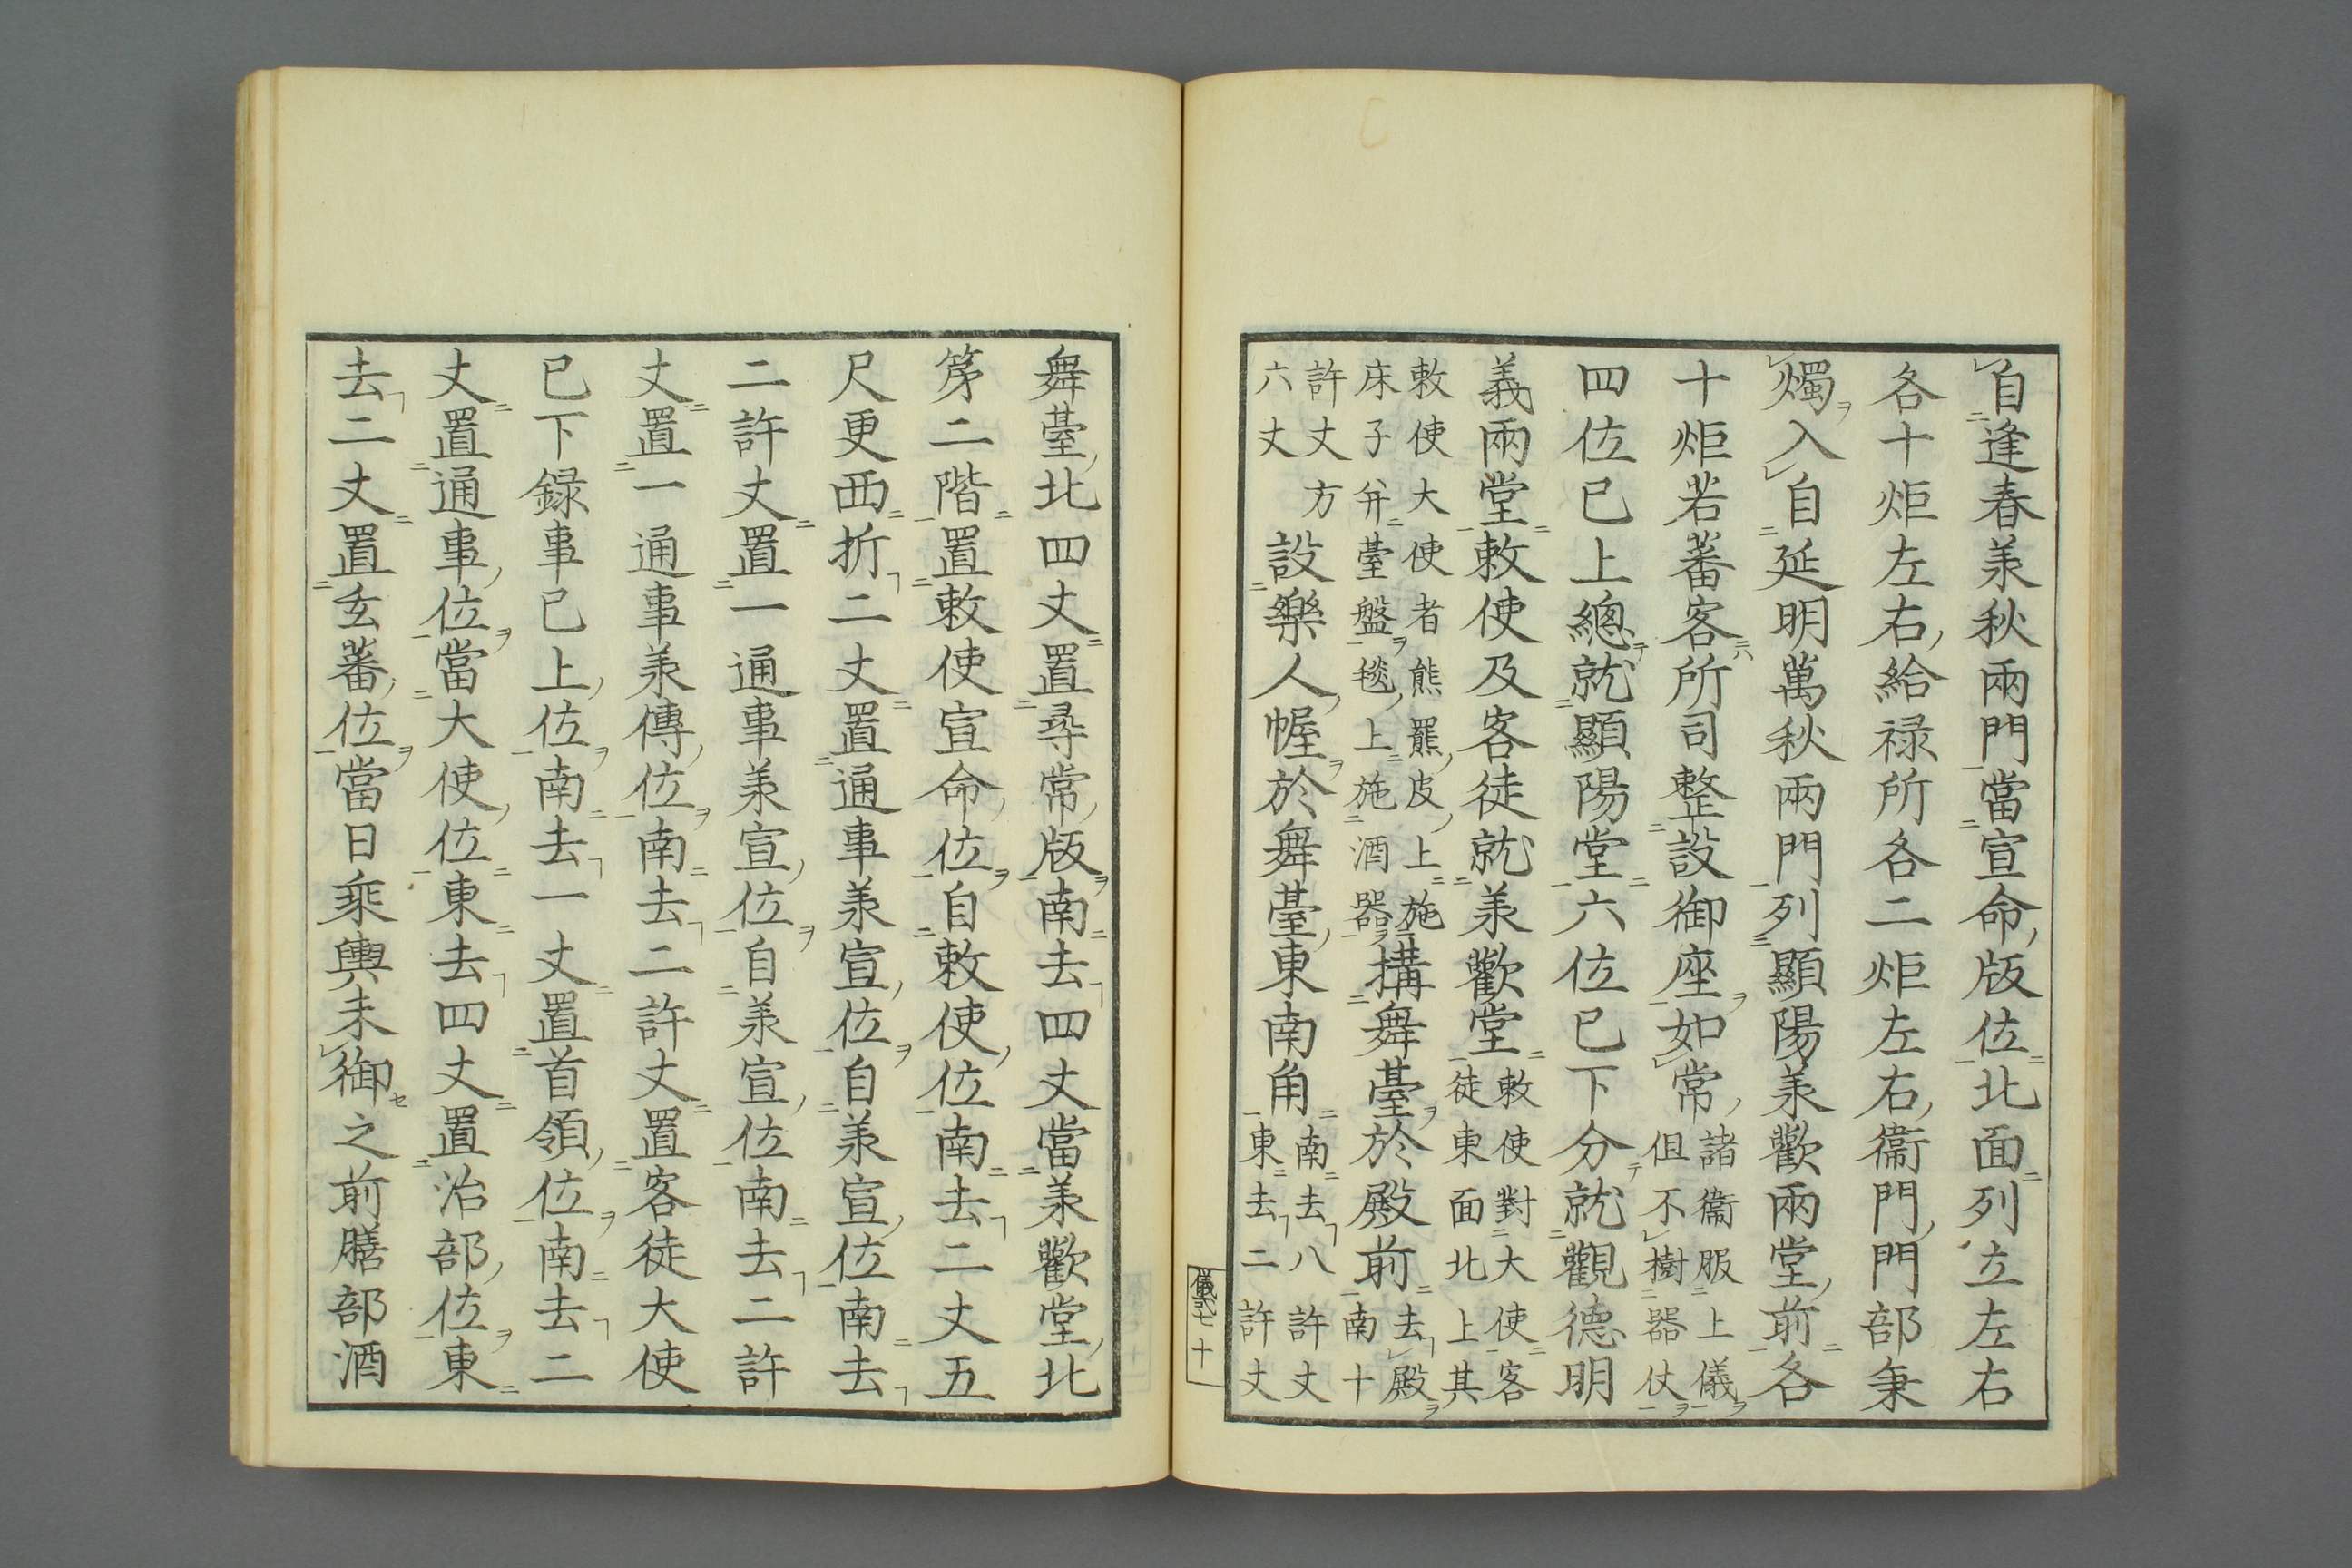 自逢春承秋兩門當宣命版位北面列立左右
各十炬左右給祿所各二炬左右衞門門部秉
燭入自延明萬秋兩門列顯陽承歡兩堂前各
十炬若蕃客所司整設御座如常諸衞服上儀
但不樹器仗
四位已上總就顯陽堂六位已下分就觀德明
義兩堂敕使及客徒就承歡堂敕使對大使客
徒東面北上其
敕使大使者熊羆皮上施
床子并臺盤毯上施酒器構舞臺於殿前去殿
南十
許丈方
六丈設樂人幄於舞臺東南角南去八許丈
東去二許丈
舞臺北四丈置尋常版南去四丈當承歡堂北
第二階置敕使宣命位自敕使位南去二丈五
尺更西折二丈置通事承宣位自承宣位南去
二許丈置一通事承宣位自承宣位南去二許
丈置一通事承傳位南去二許丈置客徒大使
已下録事已上位南去一丈置首領位南去二
丈置通事位當大使位東去四丈置治部位東
去二丈置玄蕃位當日乘輿未御之前膳部酒
儀式七 十